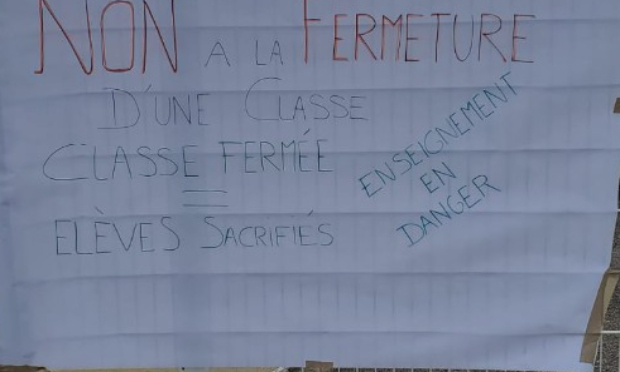 NON A LA FERMETURE
D'UNE CLASSE
CLASSE FERMÉE
=
ELÈVES SACRIFIÉS
ENSEIGNEMENT
EN
DANGER